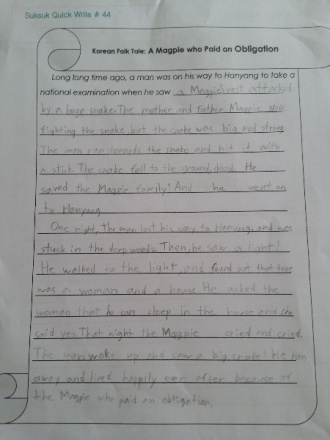 Suksuk Quick Write # 44
Korean Folk Tale: A Magpie who Paid an Obligation
Long long time ago, a man was on his way to Hanyang to take a
national examination when he saw a Magpie's nest attacked
by a huge snake. The mother and father Magpie
fighting the snake, but the snake was big and strong
The man ran towards the snake and hit it with
a stick. The snake fell to the ground, dead. He
saved the Magpie family! And he went on
to Hanyang
One night, The man lost his way to Hanyang, and was
stuck in the deep woods. Then, he saw a light!
He walked to the light, and found out that there
was a woman and a house He asked the
woman that he can sleep in the house and she
said yes. That night the Magpie cried and cried.
The man woke up and saw a big snake! he
away and lived happily ever after because of
the Magpie who paid an obligation.